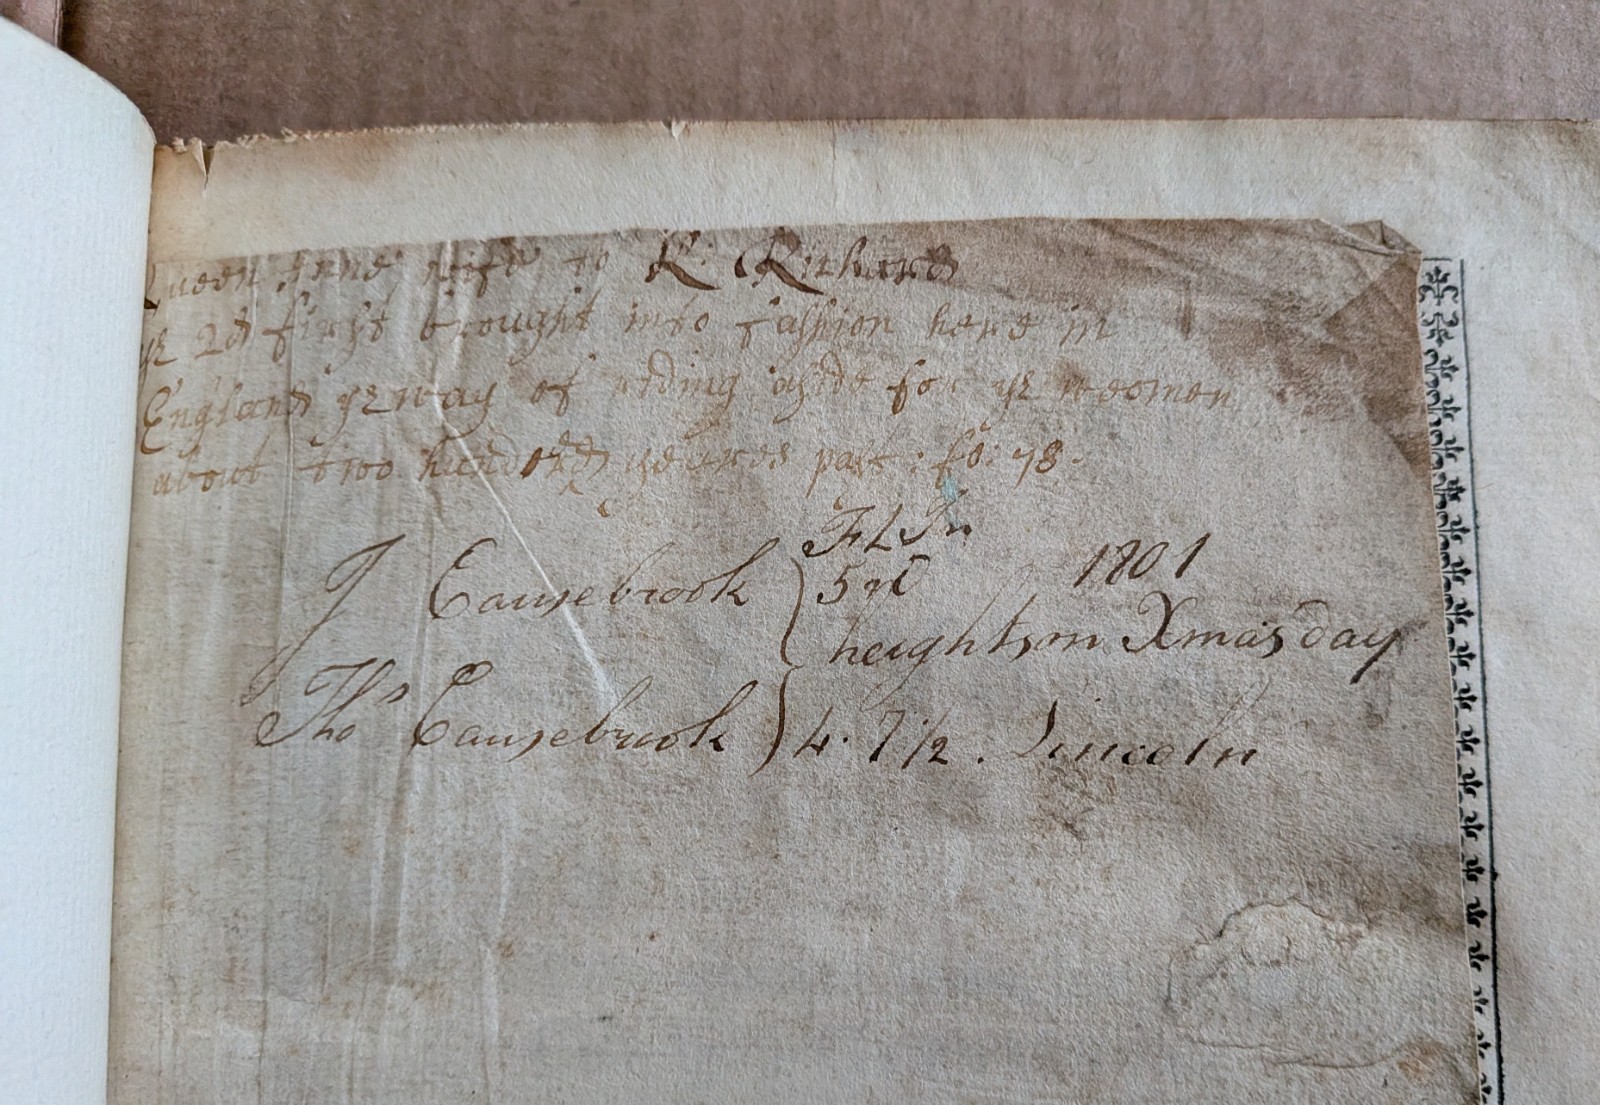 Queen Anne wife to K: Richard
ye 2d first brought into fashion here in
England ye way of rdinig aside for ye weomen
about two hundred yeares past: fo: 78.
Ft In
J Causebrook 5 1801
heights on Xmas day
Thos Causebrook 4. 7 1/2. Lincoln